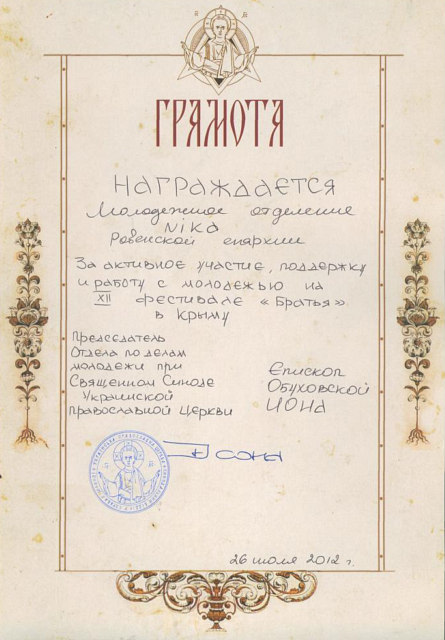 ГРАМОТА
НАГРАЖДАЕТСЯ
Молодежное отделение
Nika
Ровенской епархии
За активное участие, поддержку
и работу с молодежью на
XII фестивале «Братья»
в Крыму
Председатель
Отдела по делам
молодежи при
Священном Синоде
Украинской
Православной Церкви
Епископ
Обуховской
ИОНА
Иона
26 июля 2012 г.